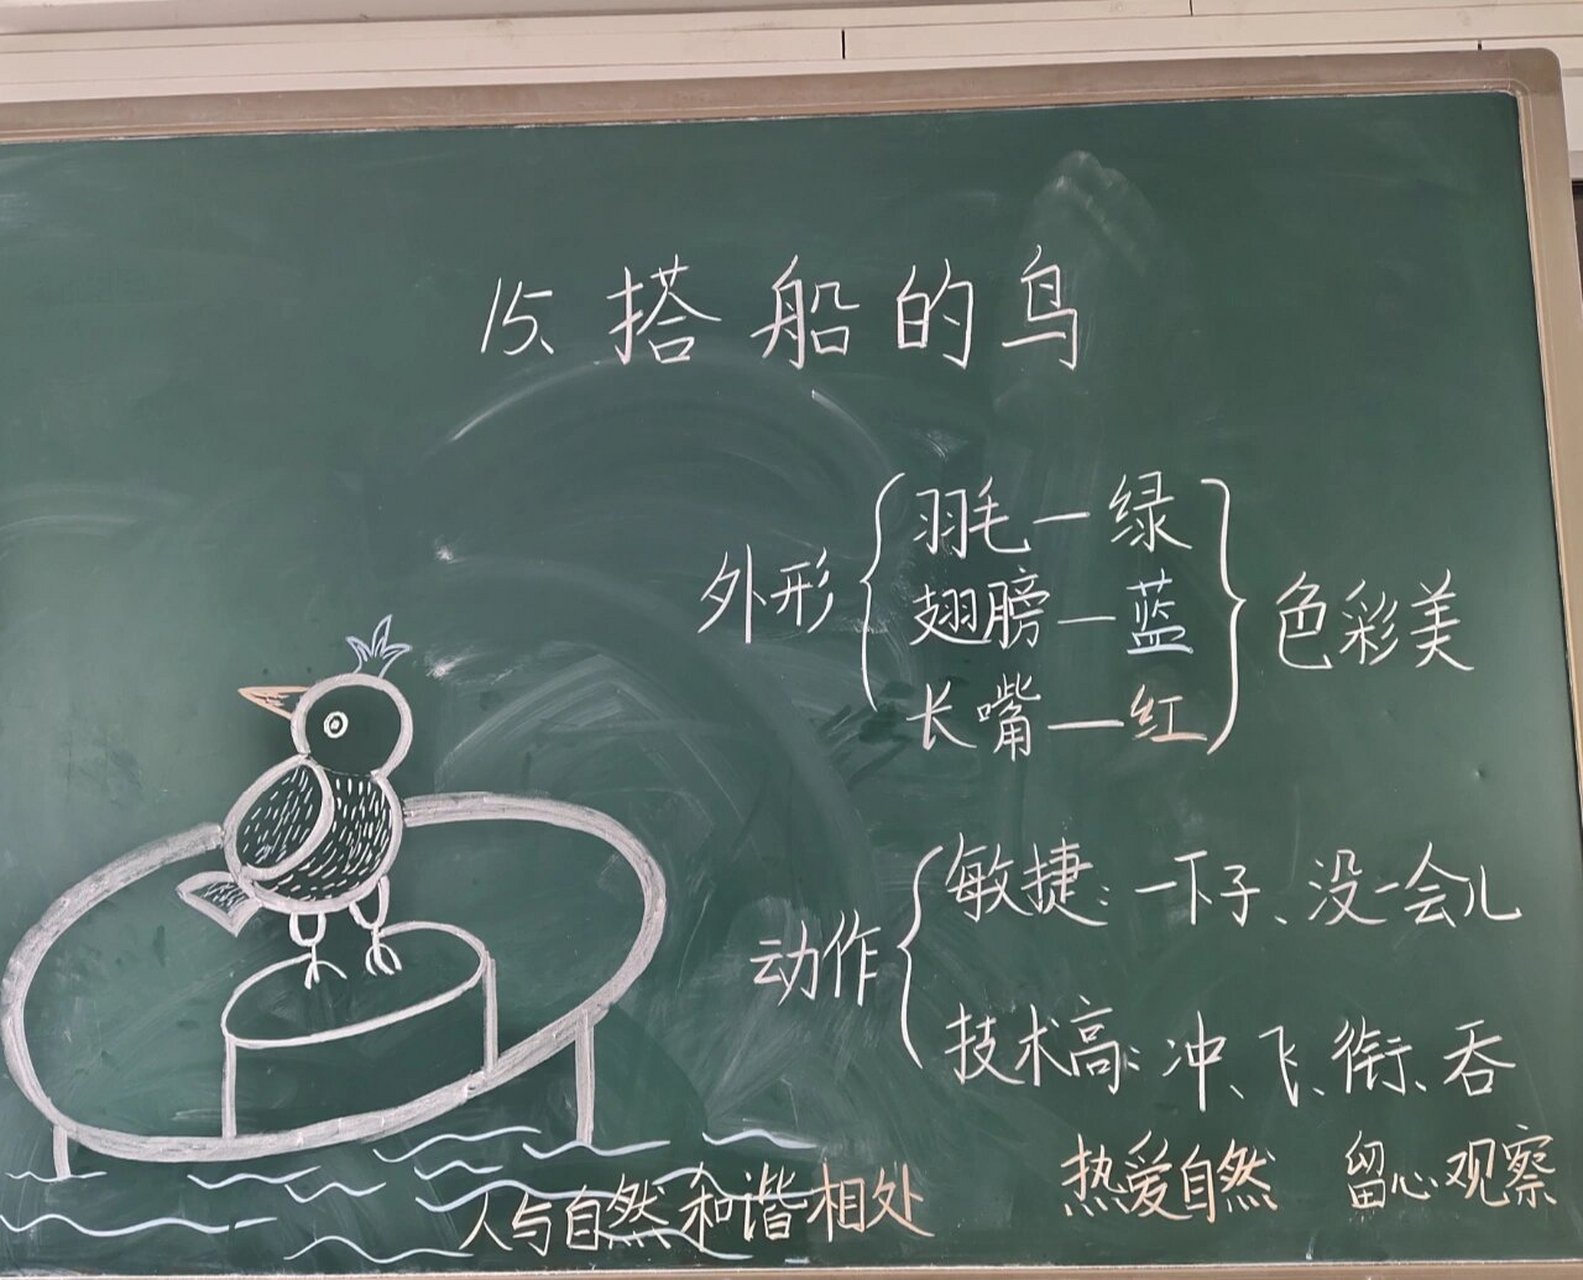 15、搭船的鸟
外形
羽毛—绿
翅膀—蓝
长嘴—红
色彩美
动作
敏捷：一下子、没一会儿
技术高：冲、飞、衔、吞
人与自然和谐相处
热爱自然 留心观察